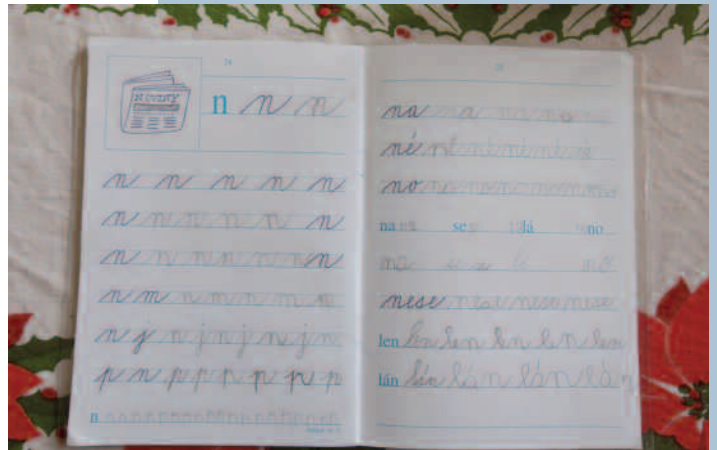 24
NOVINY
n n n
n n n n n
n n n n n n
n n n n n n n
n m n m n m n m n
n j n j n j n j n
p n p p p p p p
n n n n n n n n n n n n n n
25
na na na na
né né né né né né
no no no no no no no
na se lá no
na se lá no
nese nese nese nese
len len len len len len
lán lán lán lán lán